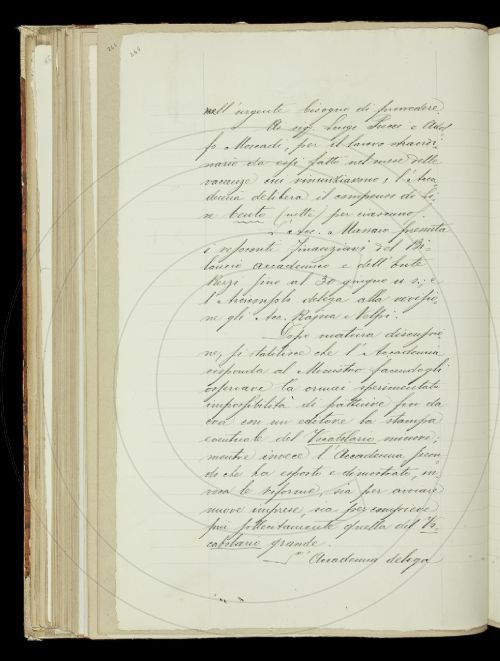 nell'urgente bisogno di provvedere.
Ai sigg. Luigi Pucci e Adol-
fo Moscadi, per il lavoro straordi-
nario da essi fatto nel mese delle
vacanze cui rinunziarono, l'Acca-
demia delibera il compenso di Li-
re Cento (nette) per ciascuno.
L'Acc. Mazzoni presenta
i resoconti finanziari del Bi-
lancio accademico e dell'Ente
Rezzi fino al 30 giugno u. s.; e
l'Arciconsolo delega alla revisio-
ne gli Acc. Rajna e Volpi.
Dopo matura discussio-
ne, si stabilisce che l'Accademia
risponda al Ministro facendogli
osservare la ormai sperimentata
impossibilità di pattuire fin da
ora con un editore la stampa
eventuale del Vocabolario minore;
mentre invece l'Accademia, secon-
do che ha esposto e dimostrato, in-
voca le riforme, sia per avviare
nuove imprese, sia per compiere
più sollecitamente quella del Vo-
cabolario grande.
L'Accademia delega